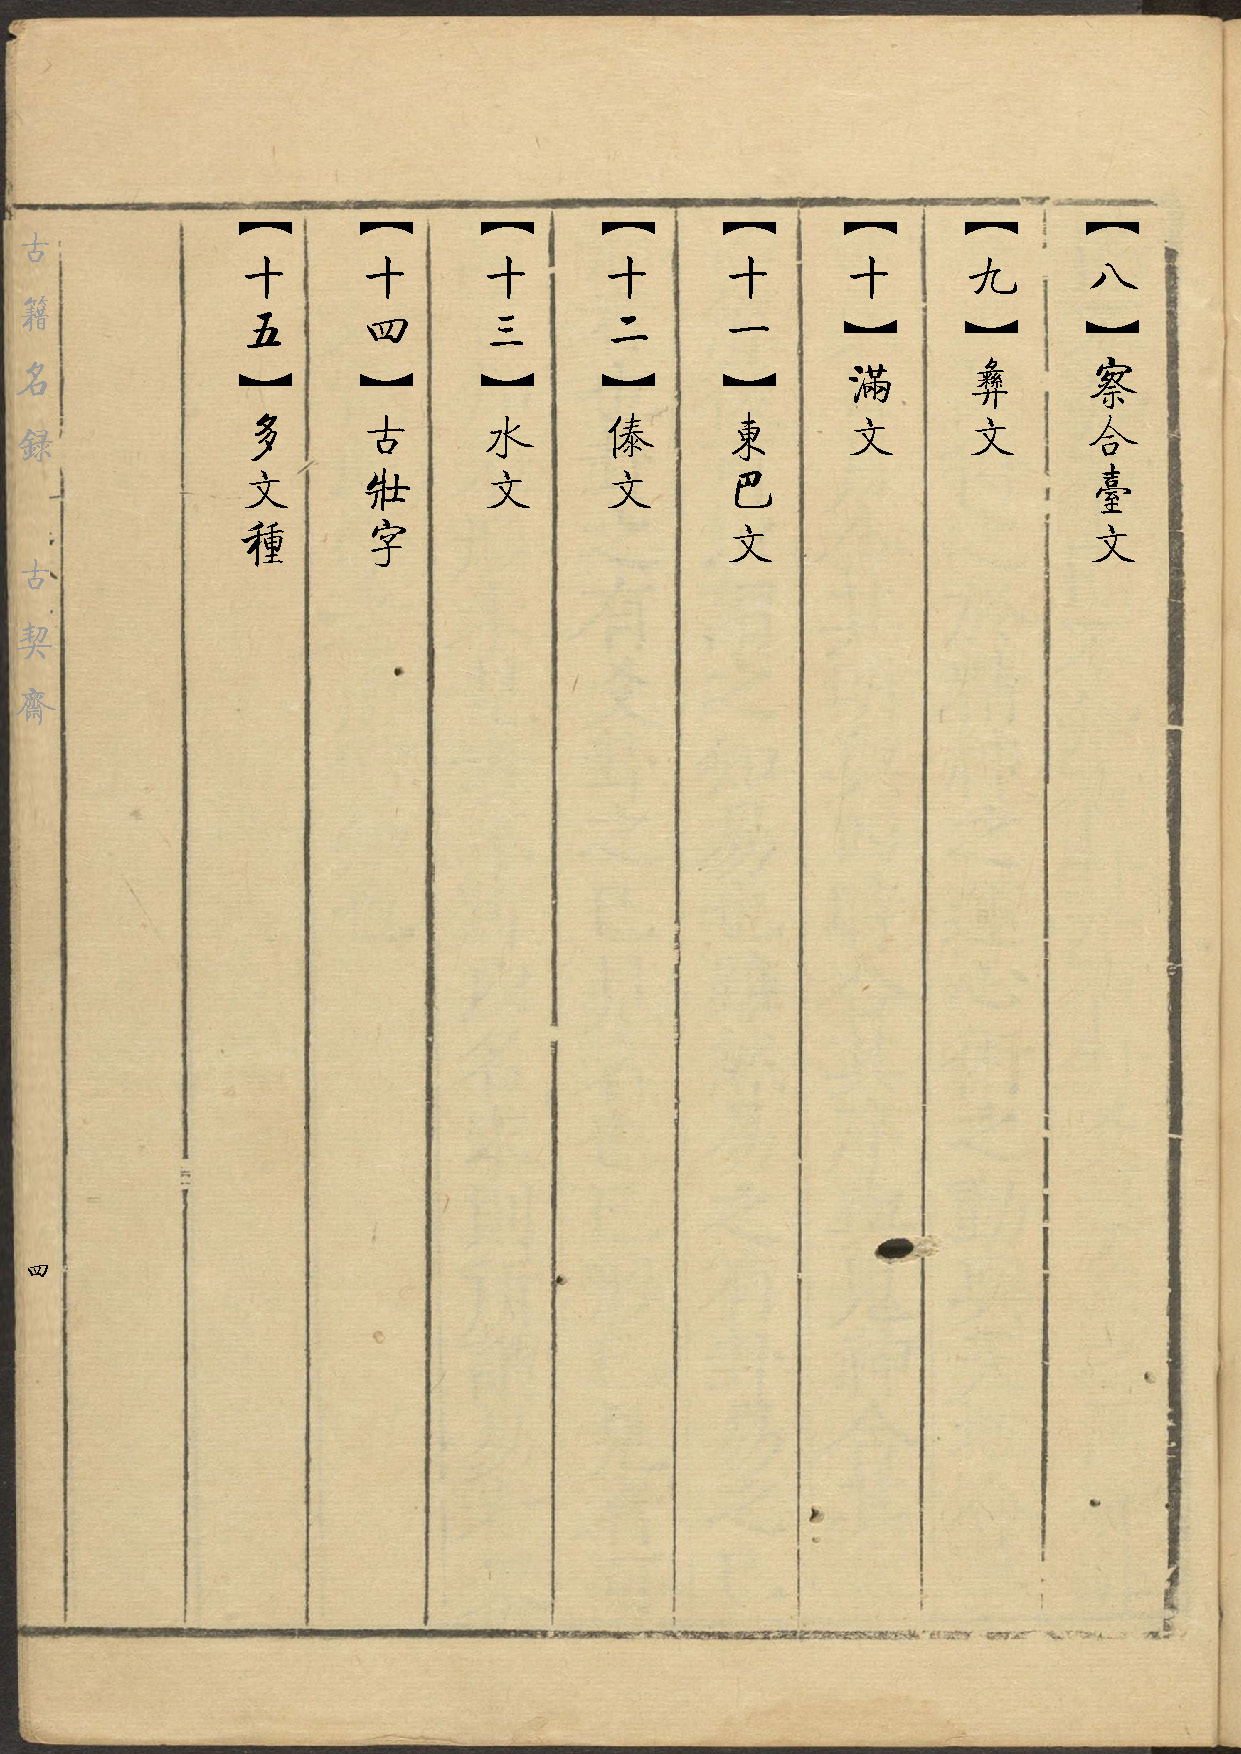 【八】察合臺文
【九】彝文
【十】滿文
【十一】東巴文
【十二】傣文
【十三】水文
【十四】古壯字
【十五】多文種
古籍名録 古契齋
四